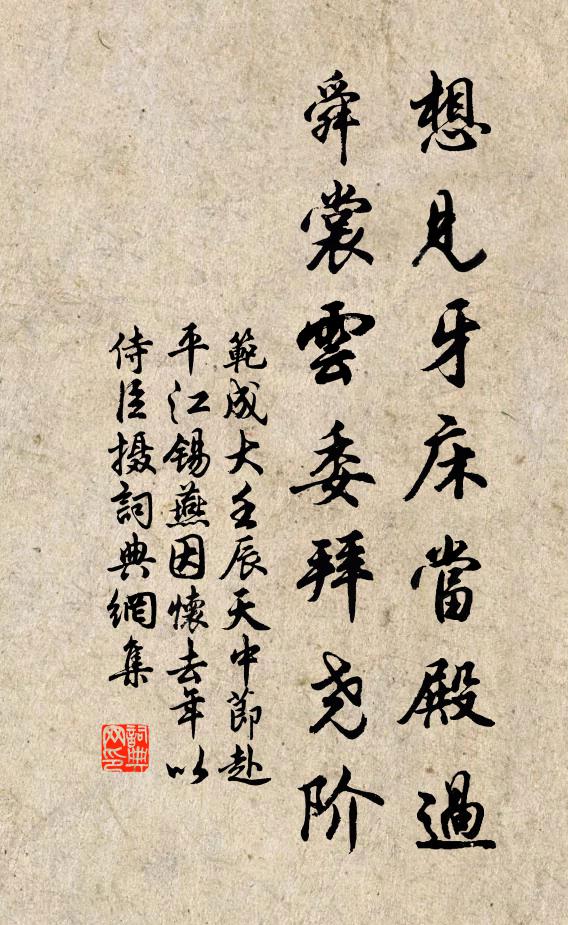 想見牙床當殿過
舜裳雲委拜尧阶
範成大壬辰天中節赴
平江錫燕因懷去年以
侍臣摄詞典網集
詞典網印